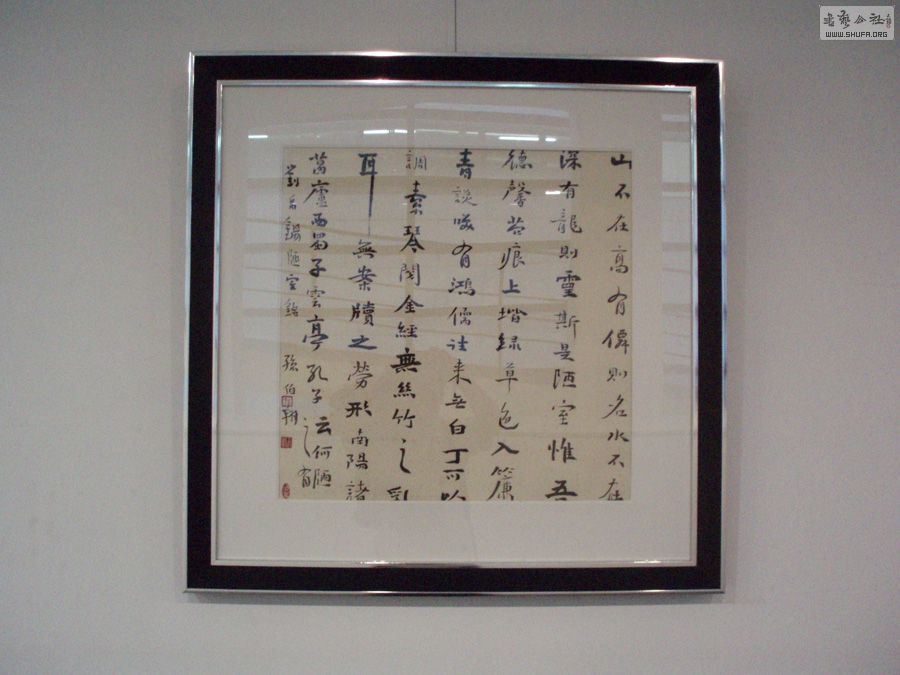 山不在高有僊則名水不在
深有龍則靈斯是陋室惟吾
德馨苔痕上堦緑草色入簾
青談咲有鴻儒往来无白丁可以
調素琴閱金經無絲竹之乱
耳無案牘之勞形南陽諸
葛廬西蜀子雲亭孔子云何陋
之有
劉禹錫陋室銘 孫伯翔
書藝公社
WWW.SHUFA.ORG